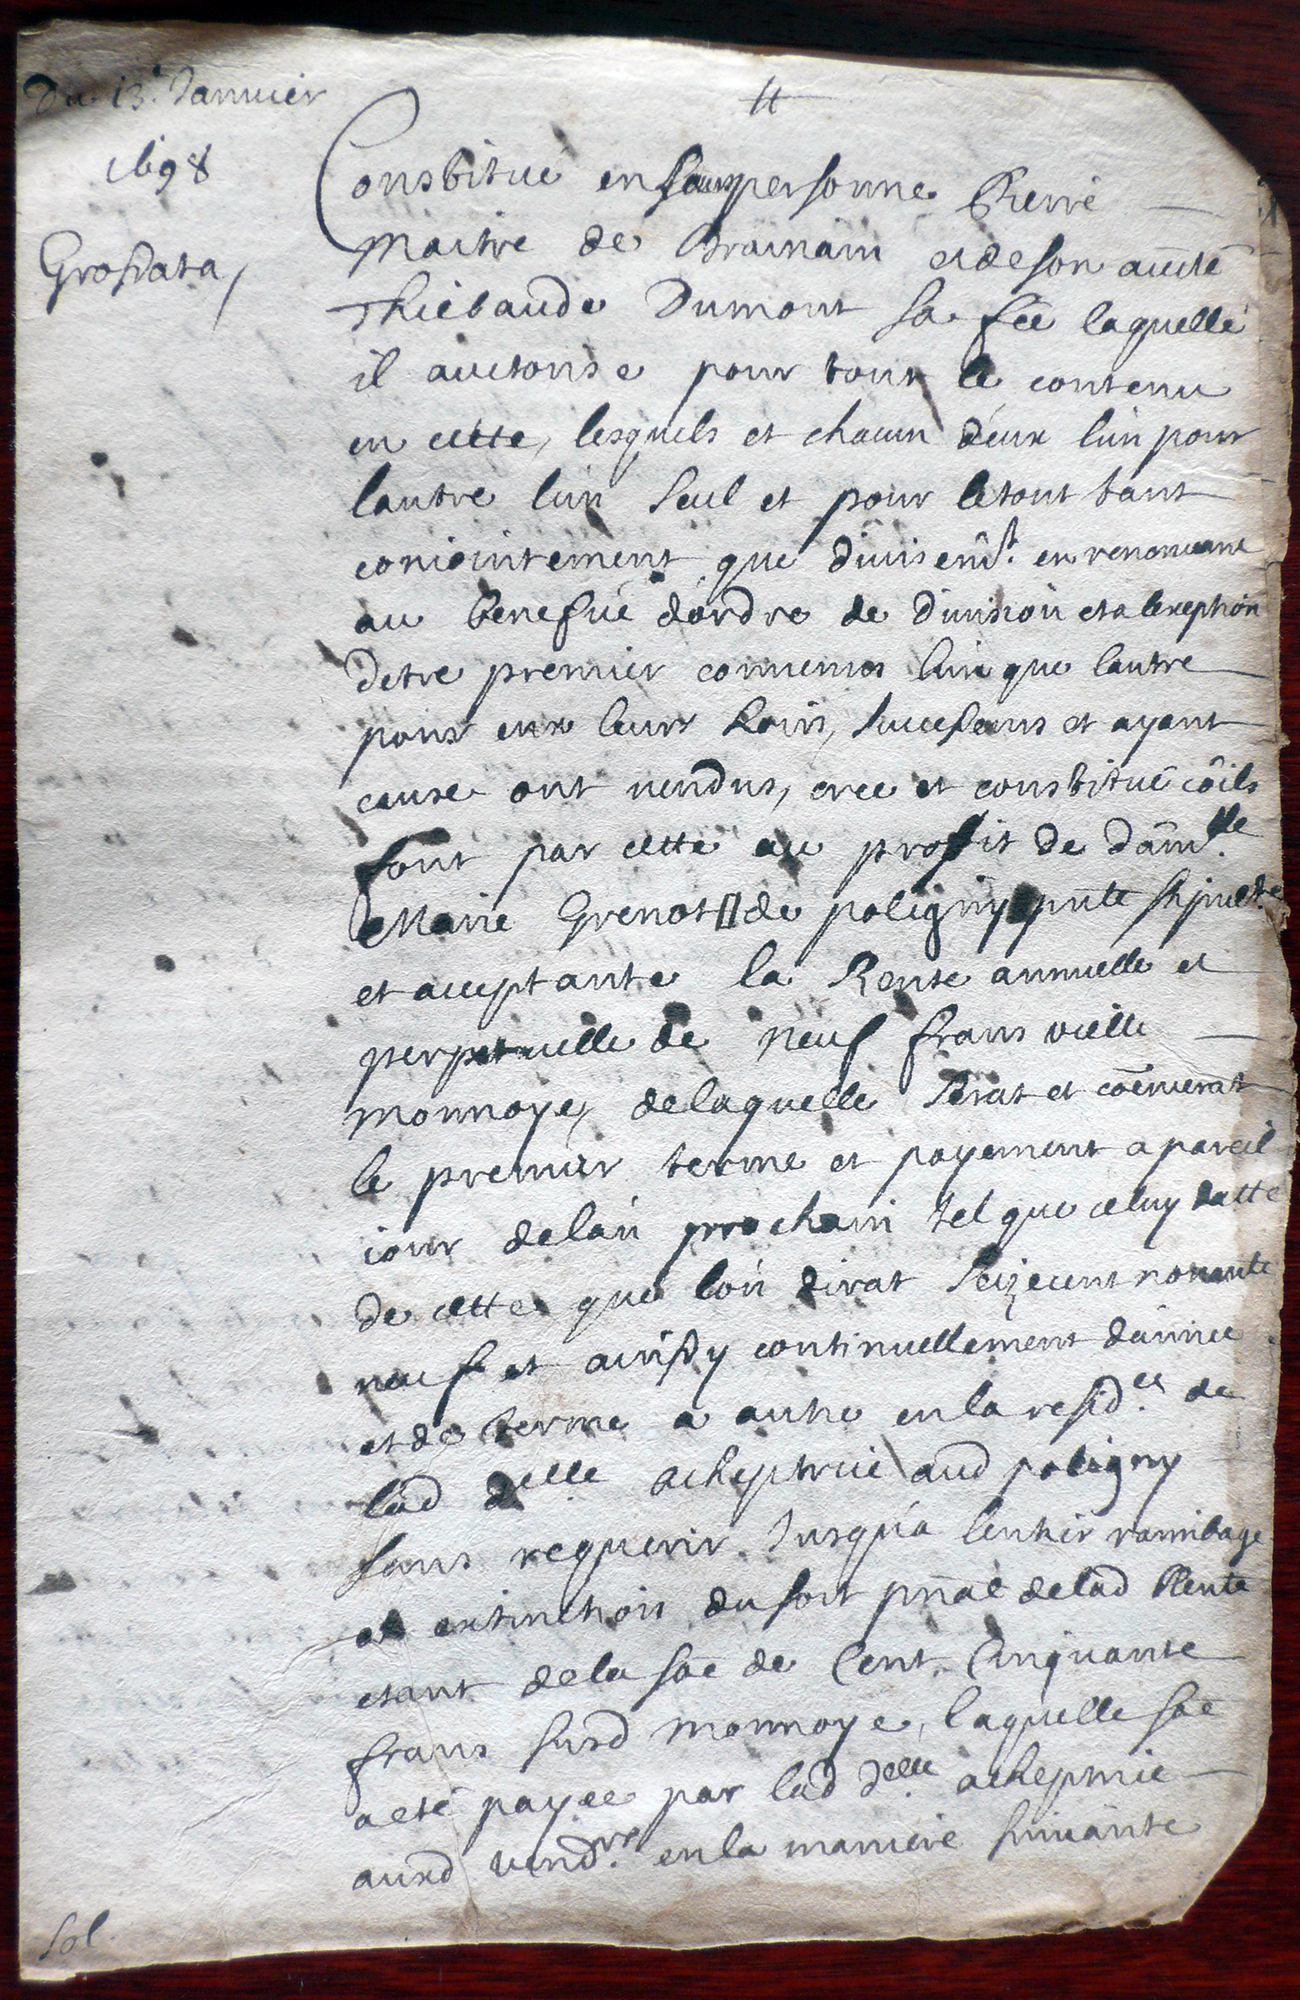 Du 13.e Janvier
1698
Grossata
Constitué en personne Pierre
Maitre de Brainain et de son autté
Thiebaude Dumont sa fēe laquelle
il auctorise pour tout le contenu
en cette, lesquels et chacun deux lun pour
lautre lun seul et pour le tout tant
coniointement que divisemt. en renonceant
au benefice dordre de Division et a lexeption
Detre premier convenus lun que lautre
pour eux leurs hoirs, successeurs et ayant
cause ont vendus, cree et constitué cōils
font par cette au profit de dām.lle
Marie Grenot de poligny pnte stipulte.
et acceptante la Rente annuelle et
perpetuelle de neuf frans vieille
monnoye, de laquelle serat et cōmencerat
le premier terme et payement a pareil
iour de lan prochain tel que celuy datte
de cette que lon dirat Seize cent nonante
neuf et ainssy continuellement dannee
et de terme a autre en la resid.ce de
lad delle acheptrice aud poligny
sans requerir Jusqua lentier
et extinction du sort pñal de lad Rente
etant de la sōe de Cent Cinquante
frans susd monnoye, laquelle sōe
a eté payee par lad d.elle acheptrice
ausd vend.rs en la maniere suivante
sol.